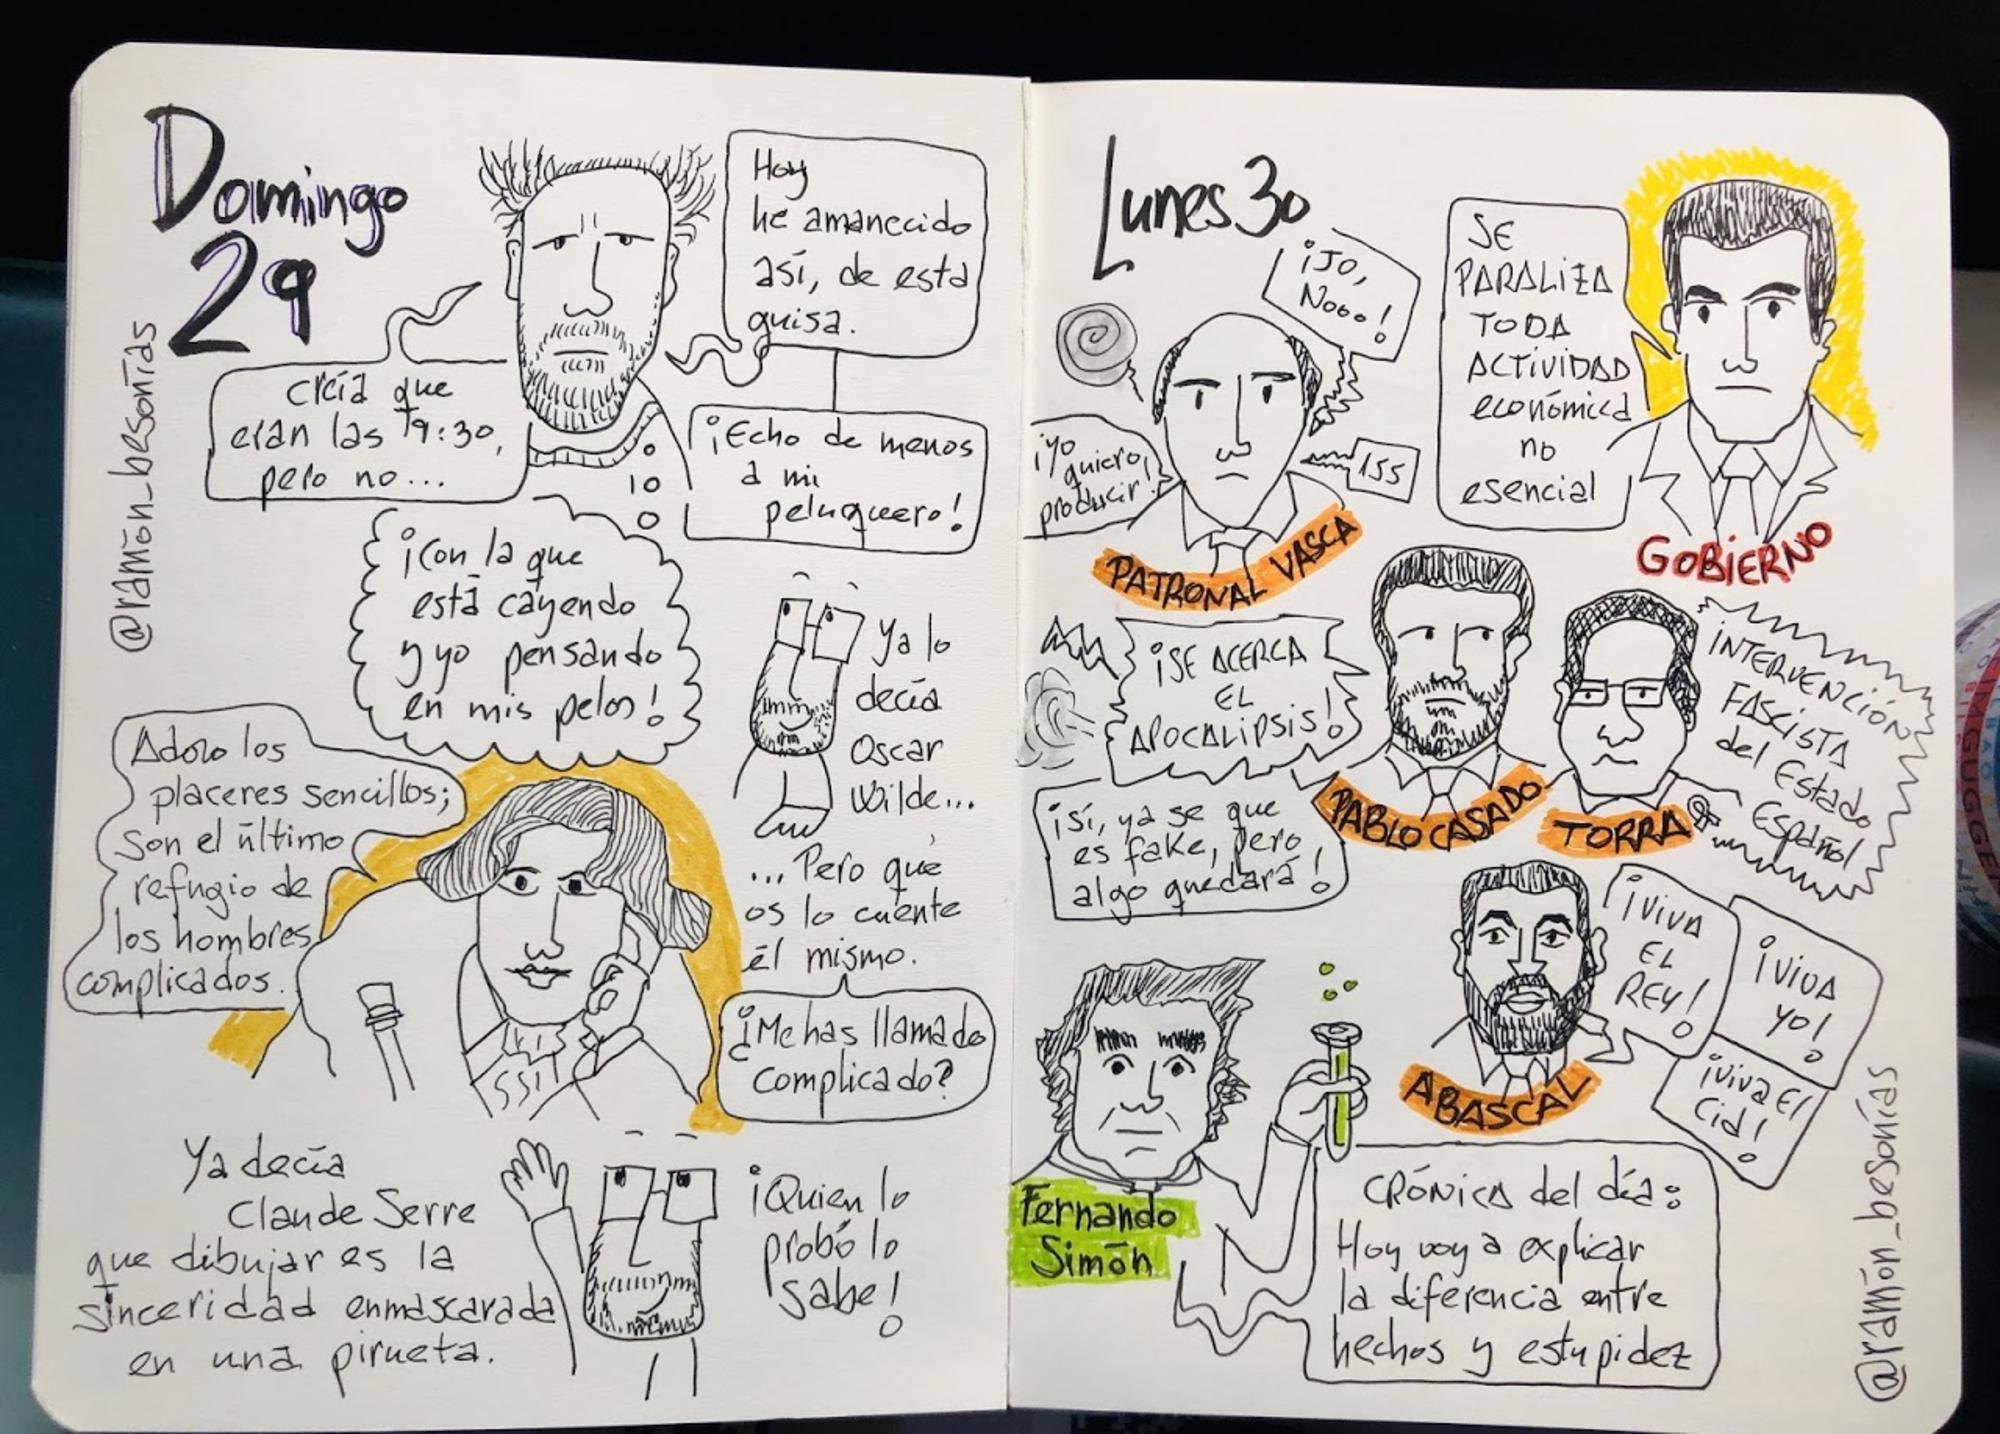 Domingo
29
@ramón_besonías
Hoy
he amanecido
así, de esta
guisa.
Creía que
eran las 9:30,
pero no...
¡Echo de menos
a mi
peluquero!
10
¡Con la que
está cayendo
y yo pensando
en mis pelos!
Ya lo
decía
Oscar
Wilde...
... Pero que
os lo cuente
él mismo.
Adoro los
placeres sencillos;
son el último
refugio de
los hombres
complicados.
¿Me has llamado
complicado?
Ya decía
Claude Serre
que dibujar es la
sinceridad enmascarada
en una pirueta.
¡Quien lo
probó lo
sabe!
Lunes 30
¡JO,
Nooo!
¡Yo
quiero
producir!
155
PATRONAL VASCA
SE
PARALIZA
TODA
ACTIVIDAD
económica
no
esencial
GOBIERNO
¡SE ACERCA
EL
APOCALIPSIS!
¡Sí, ya se que
es fake, pero
algo quedará!
PABLO CASADO
TORRA
INTERVENCIÓN
FASCISTA
del Estado
Español
¡VIVA
EL
REY!
¡VIVA
YO!
¡Viva El
Cid!
ABASCAL
Fernando
Simón
CRÓNICA del día:
Hoy voy a explicar
la diferencia entre
hechos y estupidez
@ramón_besonías